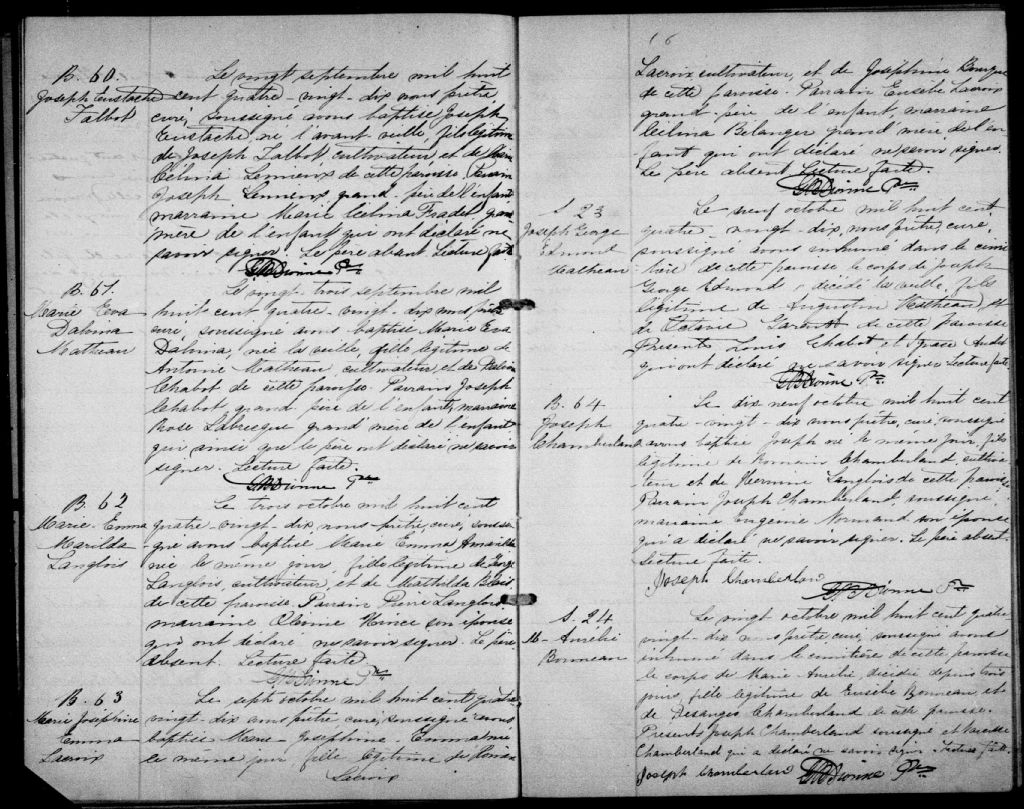 B. 60.
Joseph Eustache
Talbot
Le vingt septembre mil huit
cent quatre-vingt-dix nous prêtre
curé, soussigné avons baptisé Joseph
Eustache, né l'avant veille, fils légitime
de Joseph Talbot cultivateur et de
Célina Lemieux de cette paroisse. Parrain
Joseph Lemieux grand-père de l'enfant
marraine Marie Celina Fradet grand
mère de l'enfant qui ont déclaré ne
savoir signer. Le père absent Lecture faite
Dionne Ptre
B. 61
Marie Eva
Dalvina
Matheau
Le vingt-trois septembre mil
huit cent quatre-vingt-dix nous prêtre
curé soussigné avons baptisé Marie Eva
Dalvina, née la veille, fille légitime de
Antoine Matheau cultivateur et de
Chabot de cette paroisse. Parrain Joseph
Chabot, grand père de l'enfant, marraine
Rose Labrecque grand mère de l'enfant
qui ainsi que le père ont déclaré ne savoir
signer. Lecture faite.
Dionne Ptre
B. 62
Marie-Emma
Marilda
Langlois
Le trois octobre mil huit cent
quatre-vingt-dix nous prêtre, curé, soussi
gné avons baptisé Marie Emma
née le même jour, fille légitime de George
Langlois, cultivateur, et de Mathilda
de cette paroisse. Parrain Pierre Langlois
marraine son épouse
qui ont déclaré ne savoir signer. Le père
absent. Lecture faite
Dionne Ptre
B. 63
Marie Joséphine
Emma
Lacroix
Le sept octobre mil huit cent quatre
vingt-dix nous prêtre curé, soussigné avons
baptisé Marie-Josephine-Emma née
le même jour fille légitime de
Lacroix
Lacroix cultivateur, et de Joséphine
de cette paroisse. Parrain Eusèbe Lacroix
grand-père de l'enfant, marraine
Celina Bélanger grand mère de l'en
fant qui ont déclaré ne savoir signer.
Le père absent Lecture faite.
Dionne Ptre
S. 23
Joseph George
Edmond
Matheau
Le neuf octobre mil huit cent
quatre-vingt-dix, nous prêtre, curé
soussigné avons inhumé dans le cime
tière de cette paroisse le corps de Joseph
George Edmond, décédé la veille, fils
légitime de Augustin Matheau et
de Octavie de cette paroisse
Présents Louis Chabot et Audet
qui ont déclaré ne savoir signer Lecture faite.
Dionne Ptre
B. 64
Joseph
Chamberland
Le dix neuf octobre mil huit cent
quatre-vingt-dix nous prêtre, curé, soussigné
avons baptisé Joseph né le même jour, fils
légitime de Romain Chamberland cultiva
teur et de Hermine Langlois de cette paroisse
Parrain Joseph Chamberland, soussigné,
marraine Eugénie Normand son épouse
qui a déclaré ne savoir signer. Le père absent.
Lecture faite.
Joseph Chamberlan
Dionne Ptre
S. 24
M-Aurélie
Bonneau
Le vingt octobre mil huit cent quatre
vingt-dix nous prêtre curé, soussigné avons
inhumé dans le cimetière de cette paroisse
le corps de Marie-Aurélie, décédée depuis trois
jours, fille légitime de Eusèbe Bonneau et
de Desanges Chamberland de cette paroisse.
Présents Joseph Chamberland soussigné et
Chamberland qui a déclaré ne savoir signer Lecture faite.
Joseph Chamberlan Dionne Ptre